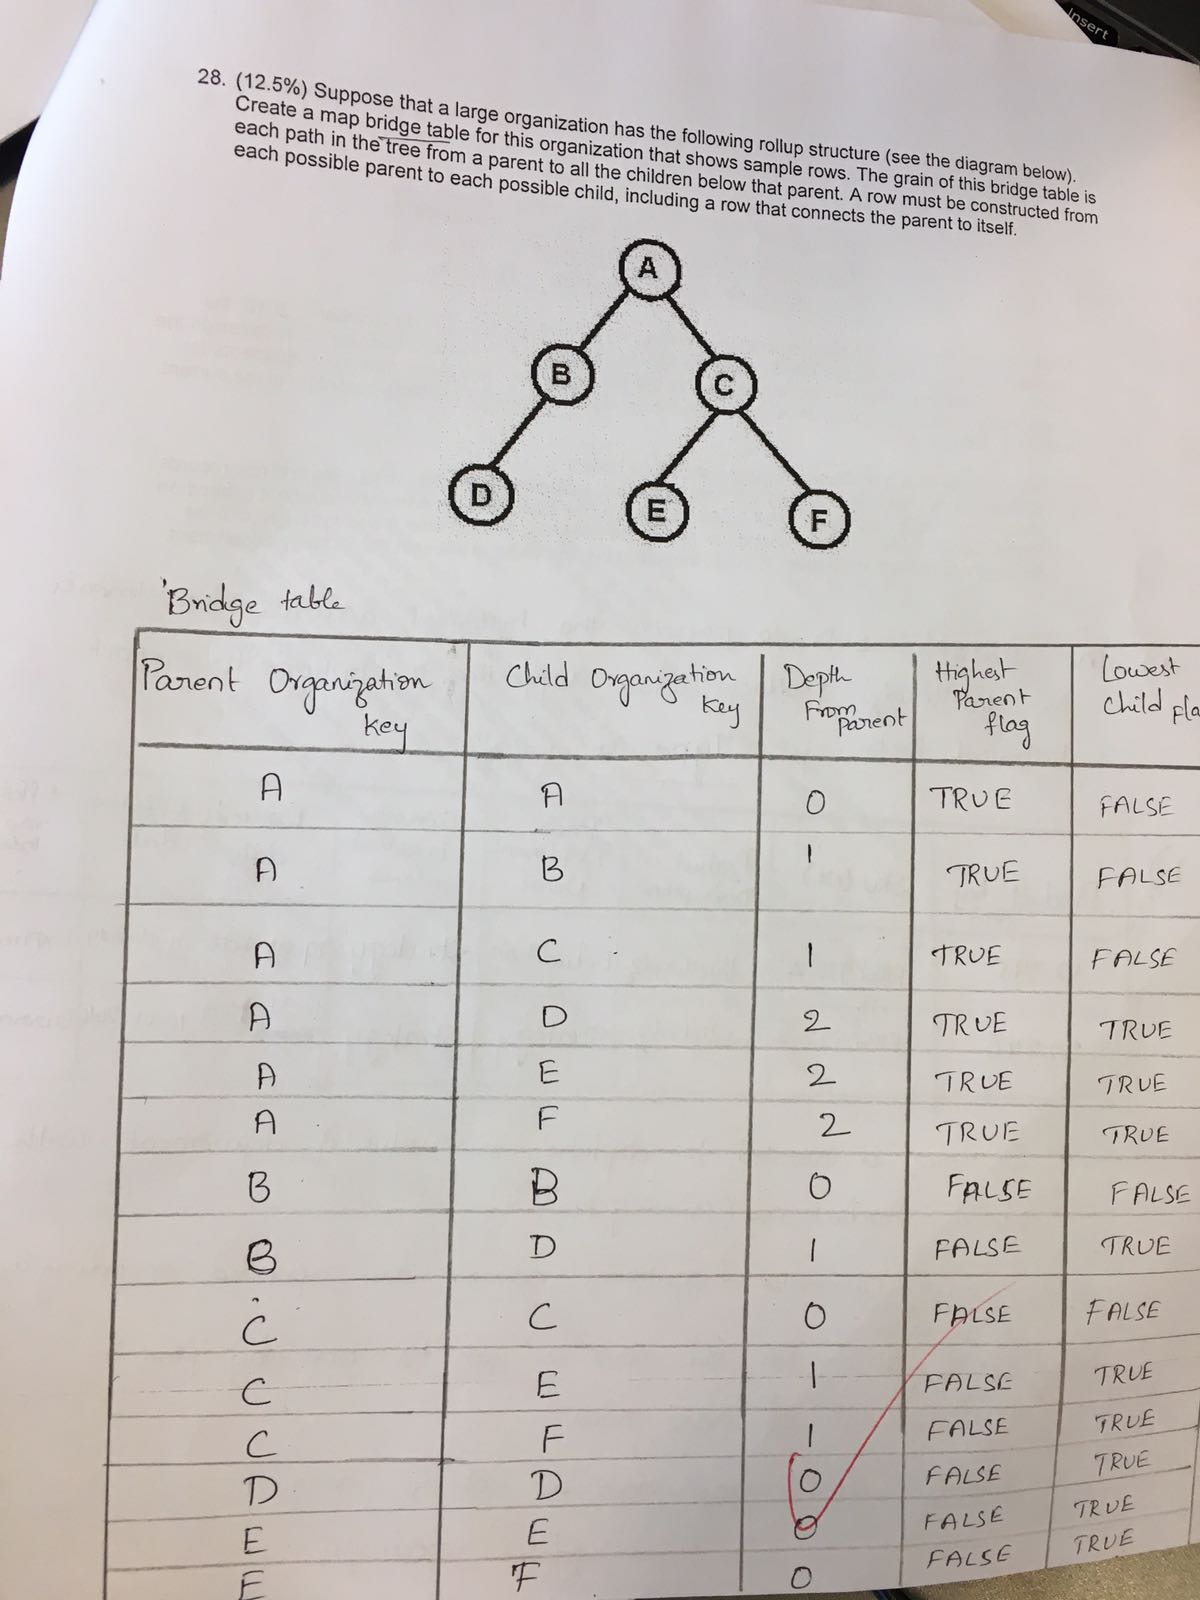 Insert
28. (12.5%) Suppose that a large organization has the following rollup structure (see the diagram below).
Create a map bridge table for this organization that shows sample rows. The grain of this bridge table is
each path in the tree from a parent to all the children below that parent. A row must be constructed from
each possible parent to each possible child, including a row that connects the parent to itself.
A
B
C
D
E
F
Bridge table
Parent Organization key Child Organization key Depth From Parent Highest Parent flag Lowest Child fla
A A 0 TRUE FALSE
A B 1 TRUE FALSE
A C 1 TRUE FALSE
A D 2 TRUE TRUE
A E 2 TRUE TRUE
A F 2 TRUE TRUE
B B 0 FALSE FALSE
B D 1 FALSE TRUE
C C 0 FALSE FALSE
C E 1 FALSE TRUE
C F 1 FALSE TRUE
D D 0 FALSE TRUE
E E 0 FALSE TRUE
F 0 FALSE TRUE